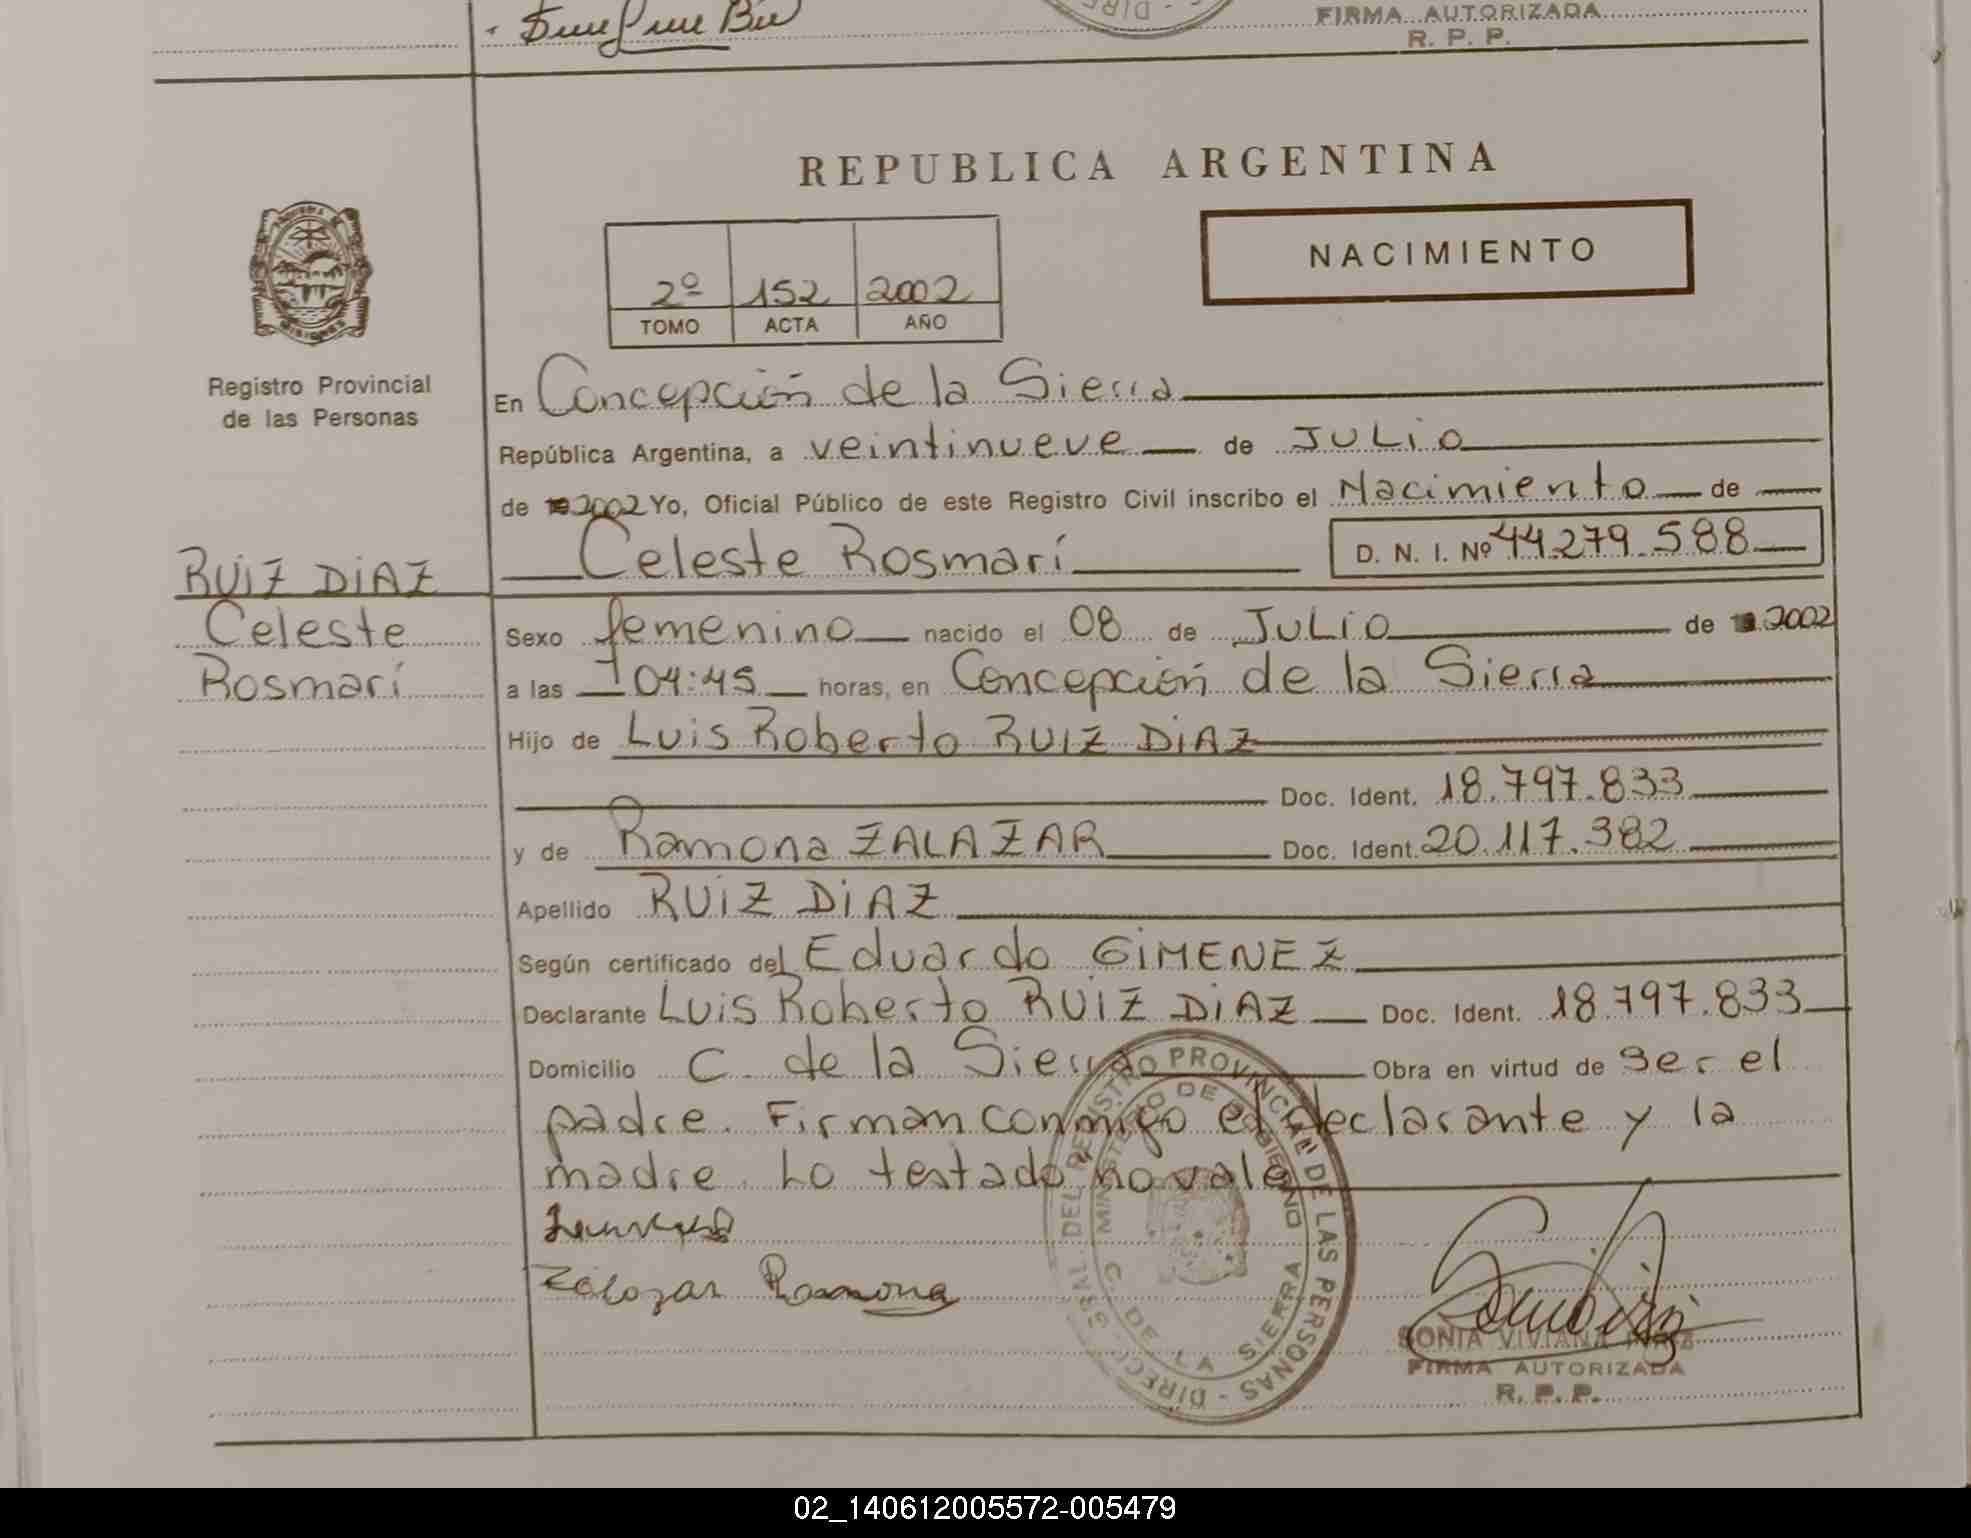 FIRMA AUTORIZADA
R. P. P.
REPUBLICA ARGENTINA
NACIMIENTO
2º 152 2002
TOMO ACTA AÑO
Registro Provincial
de las Personas
En Concepción de la Sierra
República Argentina, a veintinueve de JULio
de 2002 Yo, Oficial Público de este Registro Civil inscribo el Nacimiento de
Celeste Rosmarí D. N. I. Nº 44.279.588
RUiZ DiAZ
Celeste
Rosmarí
Sexo femenino nacido el 08 de JULio de 2002
a las 04:45 horas, en Concepción de la Sierra
Hijo de Luis Roberto RUiZ DiAZ
Doc. Ident. 18.797.833
y de Ramona ZALAZAR Doc. Ident. 20.117.382
Apellido RUiZ DiAZ
Según certificado del Eduardo GiMENEZ
Declarante Luis Roberto RUiZ DiAZ Doc. Ident. 18.797.833
Domicilio C. de la Sierra Obra en virtud de ser el
padre. Firman conmigo el declarante y la
madre. Lo testado "no vale"
Zalazar Ramona
DEL REGISTRO PROVINCIAL DE LAS PERSONAS
MINISTERIO DE GOBIERNO
C. DE LA SIERRA
SONIA VIVIANA
FIRMA AUTORIZADA
R. P. P.
02_140612005572-005479